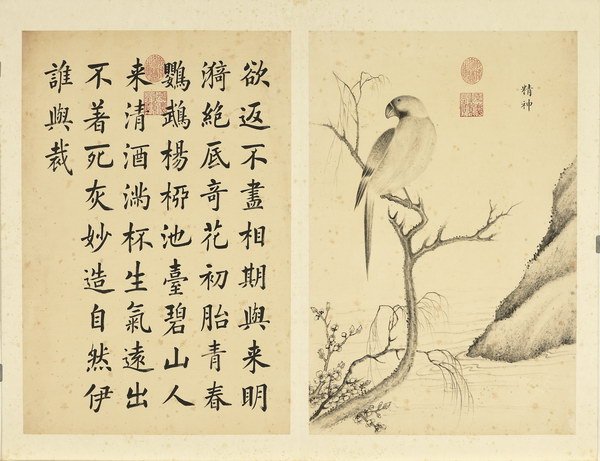 精神
欲返不盡相期與来明
漪絶底奇花初胎青春
鸚鵡楊桺池臺碧山人
来清酒滿杯生氣逺出
不著死灰妙造自然伊
誰與裁